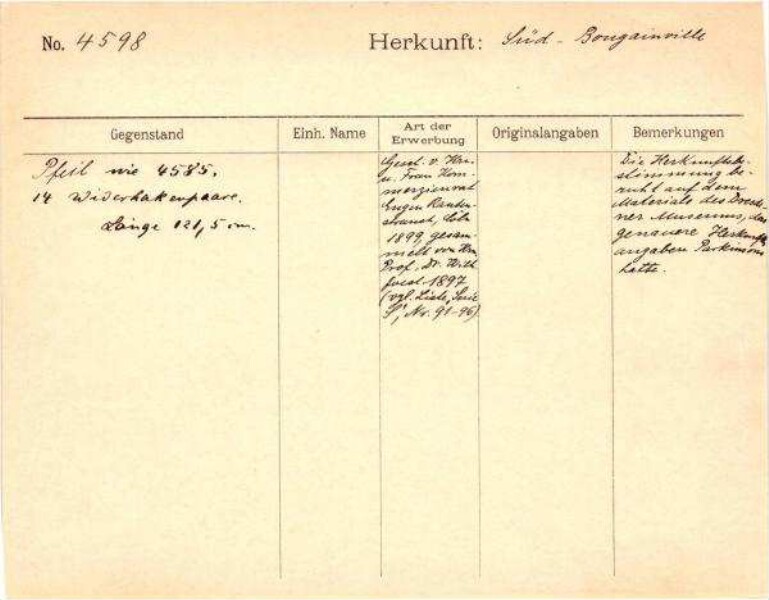 No. 4598
Herkunft: Süd-Bougainville
Gegenstand
Einh. Name
Art der Erwerbung
Originalangaben
Bemerkungen
Pfeil wie 4585.
14 Widerhakenpaare.
Länge 121,5 cm.
Gesch. v. Hrn.
u. Frau Kom-
merzienrat
Eugen Rauten-
strauch, Cöln
1899, gesam-
melt von Hrn
Prof. Dr. Wilh.
Joest 1897
(vgl. Liste, Serie
Nr. 91-96)
Die Herkunftsbe-
stimmung be-
ruht auf dem
Materiale des Dresde-
ner Museums, das
genauere Herkunfts-
angaben Parkinsons
hatte.